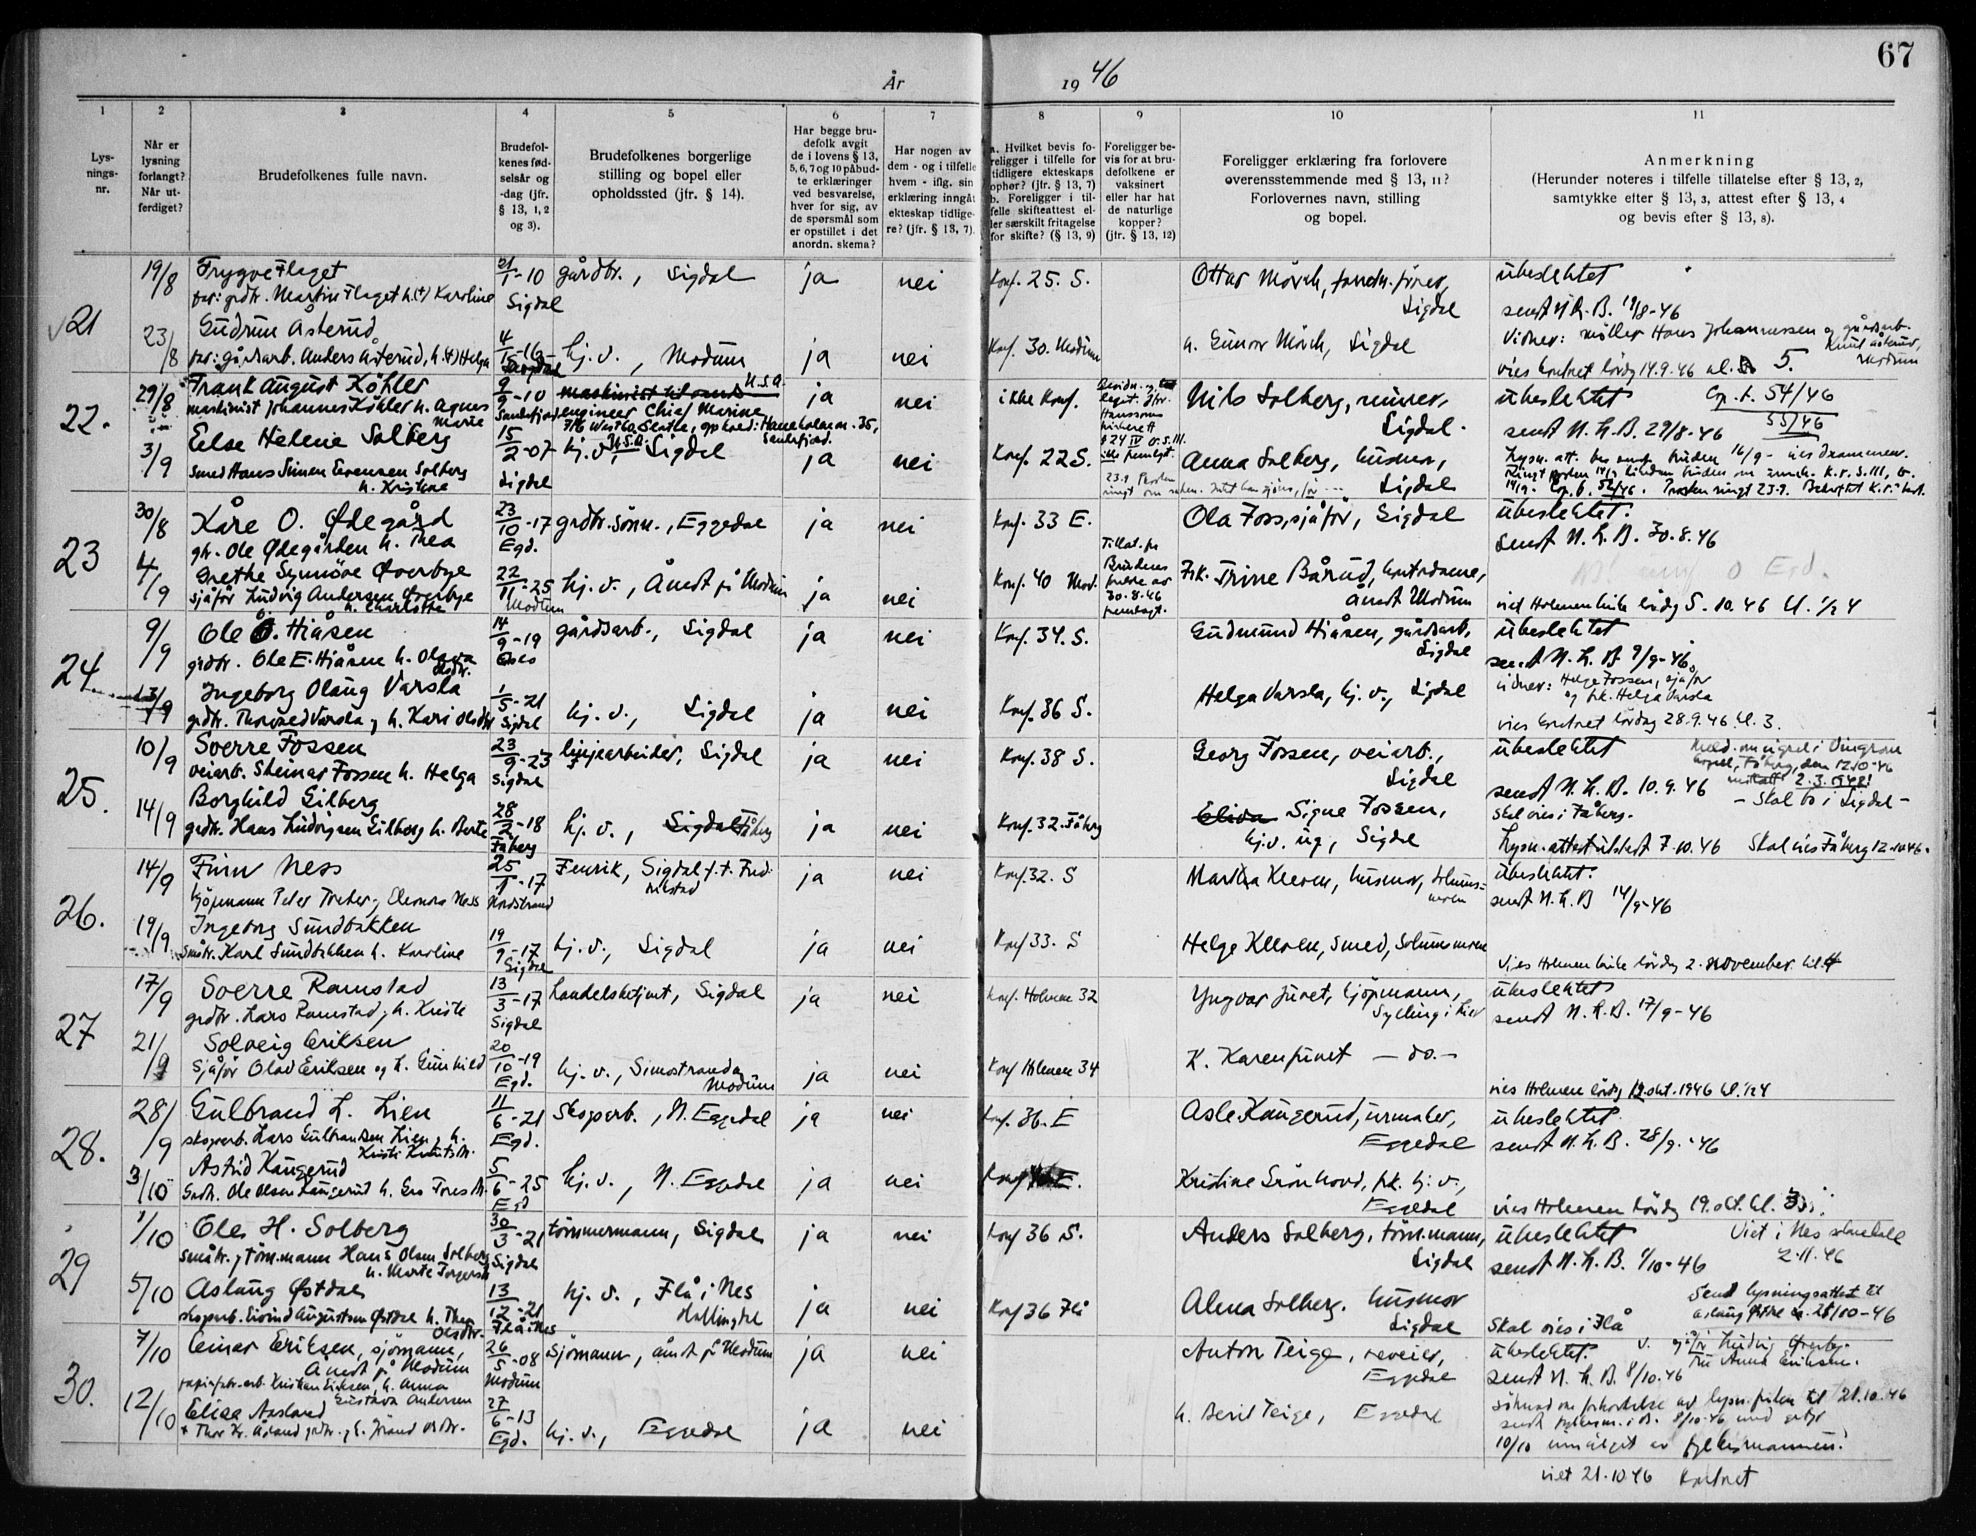 67
År 1946
1 2 3 4 5 6 7 8 9 10 11
Lys-
nings-
nr.
Når er
lysning
forlangt?
Når ut-
ferdiget?
Brudefolkenes fulle navn.
Brudefol-
kenes fød-
selsår og
-dag (jfr.
§ 13, 1, 2
og 3).
Brudefolkenes borgerlige
stilling og bopel eller
opholdssted (jfr. § 14).
Har begge bru-
defolk avgit
de i lovens § 13,
5, 6, 7 og 10 påbud-
te erklæringer
ved besvarelse,
hver for sig, av
de spørsmål som
er opstillet i det
anordn. skema?
Har nogen av
dem - og i tilfelle
hvem - iflg. sin
erklæring inngåt
ekteskap tidlige-
re? (jfr. § 13, 7).
a. Hvilket bevis fo-
religger i tilfelle for
tidligere ekteskaps
ophør? (jfr. § 13, 7)
b. Foreligger i til-
felle skifteattest el-
ler særskilt fritagelse
for skifte? (§ 13, 9)
Foreligger be-
vis for at bru-
defolkene er
vaksinert
eller har hat
de naturlige
kopper?
(jfr. § 13, 12)
Foreligger erklæring fra forlovere
overensstemmende med § 13, 11?
Forlovernes navn, stilling
og bopel.
Anmerkning
(Herunder noteres i tilfelle tillatelse efter § 13, 2,
samtykke efter § 13, 3, attest efter § 13, 4
og bevis efter § 13, 8).
21
19/8 Trygve Flaget 21/1-10 gårdbr., Sigdal ja nei Konf. 25. S. Ottar Mörch, Sigdal ubeslektet
far: grdbr. Martin Flaget h.(+) Karoline Sigdal sendt N.L.B. 19/8-46
23/8 Gudrun Åsterud 4/ -16 hj.v., Modum ja nei Konf. 30. Modum h. Gunvor Mörch, Sigdal Vidner: möller Hans Johannessen og gårdsarb. Knut Åsterud, Modum
far: gårdsarb. Anders Åsterud, h.(+) Helga vies kontret lördag 14.9.46 kl. 5.
22.
29/8 Frank August Köhler 9/9-10 U.S.A. ja nei ikke Konf. Nils Solberg, Sigdal. ubeslektet Cp. b. 54/46
maskinist Johannes Köhler h. Agnes Marie Sandefjord engineer Chief Marine sendt N.L.B. 29/8-46 55/46
3/9 Else Helene Solberg 15/2-07 hj.v., Sigdal ja nei Konf. 22 S. Anna Solberg, husmor, Sigdal
smed Hans Simen Evensen Solberg h. Kristine Sigdal
23
30/8 Kåre O. Ødegård 23/10-17 grdbr.sönn., Eggedal ja nei Konf. 33 E. Ola Foss, sjåför, Sigdal ubeslektet.
gbr. Ole Ødegården h. Thea Egd. Sendt N.L.B. 30.8.46
4/9 Grethe Synnöve Överbye 22/11-25 hj.v., Åmot på Modum ja nei Konf. 40 Mod. Tillat. fra Brudens foreldre av 30.8.46 fremlagt. Frk. Trine Bårud, kontordame, Åmot Modum
sjåför Ludvig Andersen Överbye h. Charlotte Modum viet Holmen kirke lördag 5.10.46 kl. 1/2 4
24
9/9 Ole O. Hiåsen 14/9-19 gårdsarb., Sigdal ja nei Konf. 34. S. Gudmund Hiåsen, gårdsarb., Sigdal ubeslektet
grdbr. Ole E. Hiåsen h. Olava Olsdtr. Oslo sendt N.L.B. 9/9-46
13/9 Ingeborg Olaug Varsla 1/5-21 hj.v., Sigdal ja nei Konf. 36 S. Helga Varsla, hj.v., Sigdal vidner: Helge Fossen, sjåför og frk. Helga Varsla
grdbr. Thorvald Varsla og h. Kari Olsdtr Sigdal vies kontret lördag 28.9.46 kl. 3.
25.
10/9 Sverre Fossen 23/9-23 linjearbeider, Sigdal ja nei Konf. 38 S. Georg Fossen, veiarb., Sigdal ubeslektet
veiarb. Steinar Fossen h. Helga Sigdal sendt N.L.B. 10.9.46 - Skal bo i Sigdal -
14/9 Borghild Gilberg 28/2-18 hj.v., Sigdal Fåberg ja nei Konf. 32. Fåberg Signe Fossen, hj.v. ug., Sigdal Skal vies i Fåberg.
grdbr. Hans Ludvigsen Gilberg h. Berte Fåberg Lysn. attest utstedt 7.10.46 Skal vies Fåberg 12-10-46.
26.
14/9 Finn Ness 25/1-17 Fenrik, Sigdal f.t. Fredrikstad ja nei Konf. 32. S Martha Kleven, husmor, Solumsmoen ubeslektet.
kjöpmann Peter og Eleonora Ness Nordstrand sendt N.L.B 14/9-46
19/9 Ingeborg Sundbakken 19/9-17 hj.v., Sigdal ja nei Konf 33. S Helge Kleven, smed, Solumsmoen
småbr. Karl Sundbakken h. Karoline Sigdal Vies Holmen kirke lördag 2. november kl. 4
27
17/9 Sverre Ramstad 13/3-17 handelsbetjent, Sigdal ja nei Konf. Holmen 32 Yngvar Juvet, kjöpmann, Sylling i Lier ubeslektet
grdbr. Lars Ramstad og h. Kristi Sigdal sendt N.L.B. 17/9-46
21/9 Solveig Eriksen 20/10-19 hj.v., Simostranda Modum ja nei Konf Holmen 34 K. Karen Juvet - do. -
sjåför Olav Eriksen og h. Gunhild Egd. vies Holmen lördag 12 okt. 1946 kl. 1/2 4
28.
28/9 Gulbrand L. Lien 11/6-21 skogarb., N. Eggedal ja nei Konf. 36. E Asle Kaugerud, urmaker, Eggedal ubeslektet
skogarb. Lars Gulbrandsen Lien og h. Kristi Knutsdtr. Egd. sendt N.L.B. 28/9-46
3/10 Astrid Kaugerud 5/6-25 hj.v., N. Eggedal ja nei Kristine Grönhovd, frk. hj.v., Eggedal
Ole Olsen Kaugerud h. Gro Egd vies Holmen lördag 19. okt. kl. 3
29
1/10 Ole H. Solberg 30/3-21 tömmermann, Sigdal ja nei Konf 36 S. Anders Solberg, töm.mann, Sigdal ubeslektet Viet i Nes 2.11.46
småbr. og töm.mann Hans Olsen Solberg h. Marte Torgersdtr Sigdal sendt N.L.B. 1/10-46
5/10 Aslaug Østdal 13/12-21 hj.v., Flå i Nes Hallingdal ja nei Konf 36 Flå Alma Solberg, husmor Sigdal Send lysningsattest til
skogarb. Eivind Augustsen Østdal h. Thea Olsdtr. Flå i Nes Skal vies i Flå
30.
7/10 Einar Eriksen, sjömann, Åmot på Modum 26/5-08 Sjömann, Åmot på Modum ja nei Anton Teige, Eggedal ubeslektet. v. sjåför Ludvig Överby. Fru Anna Eriksen.
Kristian Eriksen, h. Anna Gustava Andersen Modum sendt N.L.B. 8/10.46
12/10 Elise Aasland 27/6-13 hj.v., Eggedal ja nei h. Berit Teige, Eggedal
Egd. 10/10 innvilget av fylkesmannen.
viet 21.10.46 kontret